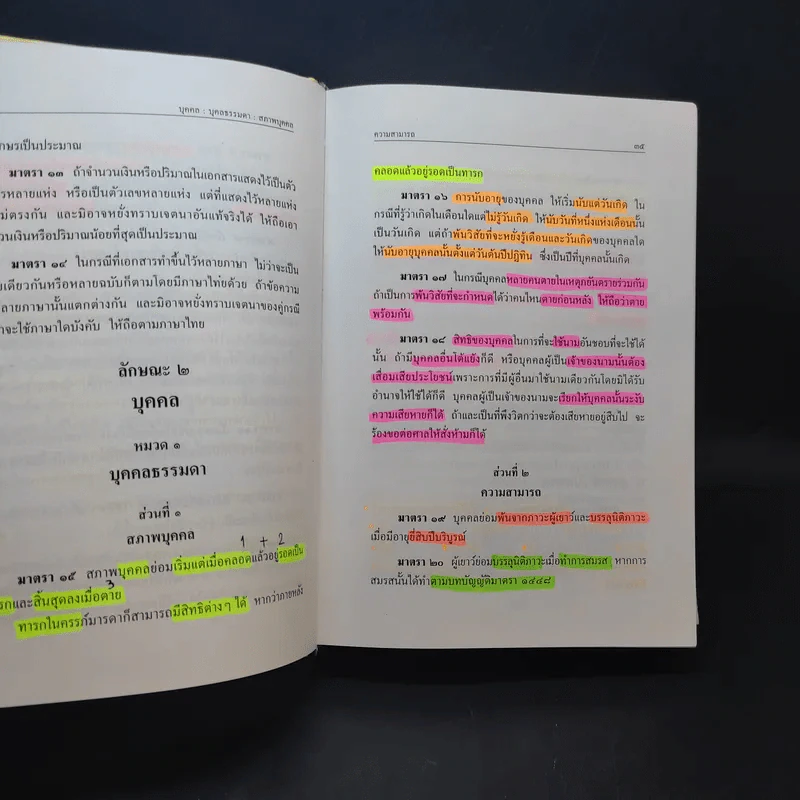 บุคคล : บุคคลธรรมดา : สภาพบุคคล
ษรเป็นประมาณ
มาตรา ๑๓ ถ้าจำนวนเงินหรือปริมาณในเอกสารแสดงไว้เป็นตัว
รหลายแห่ง หรือเป็นตัวเลขหลายแห่ง แต่ที่แสดงไว้หลายแห่ง
ม่ตรงกัน และมิอาจหยั่งทราบเจตนาอันแท้จริงได้ ให้ถือเอา
วนเงินหรือปริมาณน้อยที่สุดเป็นประมาณ
มาตรา ๑๔ ในกรณีที่เอกสารทำขึ้นไว้หลายภาษา ไม่ว่าจะเป็น
ยเดียวกันหรือหลายฉบับก็ตามโดยมีภาษาไทยด้วย ถ้าข้อความ
ลายภาษานั้นแตกต่างกัน และมิอาจหยั่งทราบเจตนาของคู่กรณี
าจะใช้ภาษาใดบังคับ ให้ถือตามภาษาไทย
ลักษณะ ๒
บุคคล
หมวด ๑
บุคคลธรรมดา
ส่วนที่ ๑
สภาพบุคคล
1 + 2
มาตรา ๑๕ สภาพบุคคลย่อมเริ่มแต่เมื่อคลอดแล้วอยู่รอดเป็น
รกและสิ้นสุดลงเมื่อตาย
3
ทารกในครรภ์มารดาก็สามารถมีสิทธิต่างๆ ได้ หากว่าภายหลัง
ความสามารถ
๓๕
คลอดแล้วอยู่รอดเป็นทารก
มาตรา ๑๖ การนับอายุของบุคคล ให้เริ่มนับแต่วันเกิด ใน
กรณีที่รู้ว่าเกิดในเดือนใดแต่ไม่รู้วันเกิด ให้นับวันที่หนึ่งแห่งเดือนนั้น
เป็นวันเกิด แต่ถ้าพ้นวิสัยที่จะหยั่งรู้เดือนและวันเกิดของบุคคลใด
ให้นับอายุบุคคลนั้นตั้งแต่วันต้นปีปฏิทิน ซึ่งเป็นปีที่บุคคลนั้นเกิด
มาตรา ๑๗ ในกรณีบุคคลหลายคนตายในเหตุภยันตรายร่วมกัน
ถ้าเป็นการพ้นวิสัยที่จะกำหนดได้ว่าคนไหนตายก่อนหลัง ให้ถือว่าตาย
พร้อมกัน
มาตรา ๑๘ สิทธิของบุคคลในการที่จะใช้นามอันชอบที่จะใช้ได้
นั้น ถ้ามีบุคคลอื่นโต้แย้งก็ดี หรือบุคคลผู้เป็นเจ้าของนามนั้นต้อง
เสื่อมเสียประโยชน์เพราะการที่มีผู้อื่นมาใช้นามเดียวกันโดยมิได้รับ
อำนาจให้ใช้ได้ก็ดี บุคคลผู้เป็นเจ้าของนามจะเรียกให้บุคคลนั้นระงับ
ความเสียหายก็ได้ ถ้าและเป็นที่พึงวิตกว่าจะต้องเสียหายอยู่สืบไป จะ
ร้องขอต่อศาลให้สั่งห้ามก็ได้
ส่วนที่ ๒
ความสามารถ
มาตรา ๑๙ บุคคลย่อมพ้นจากภาวะผู้เยาว์และบรรลุนิติภาวะ
เมื่อมีอายุยี่สิบปีบริบูรณ์
มาตรา ๒๐ ผู้เยาว์ย่อมบรรลุนิติภาวะเมื่อทำการสมรส หากการ
สมรสนั้นได้ทำตามบทบัญญัติมาตรา ๑๔๔๘